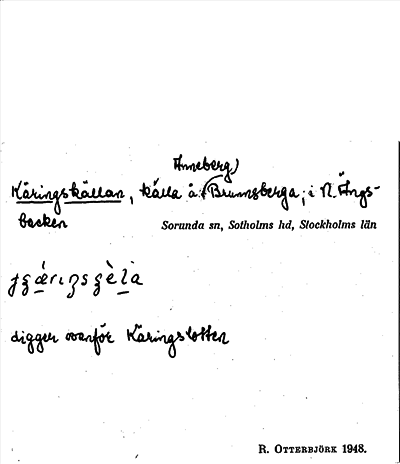 Anneberg)
Käringskällan, källa å (Brunnsberga, i N. Ängs-
backen
Sorunda sn, Sotholms hd, Stockholms län
ligger ovanför Käringslotten
R. OTTERBJÖRK 1948.